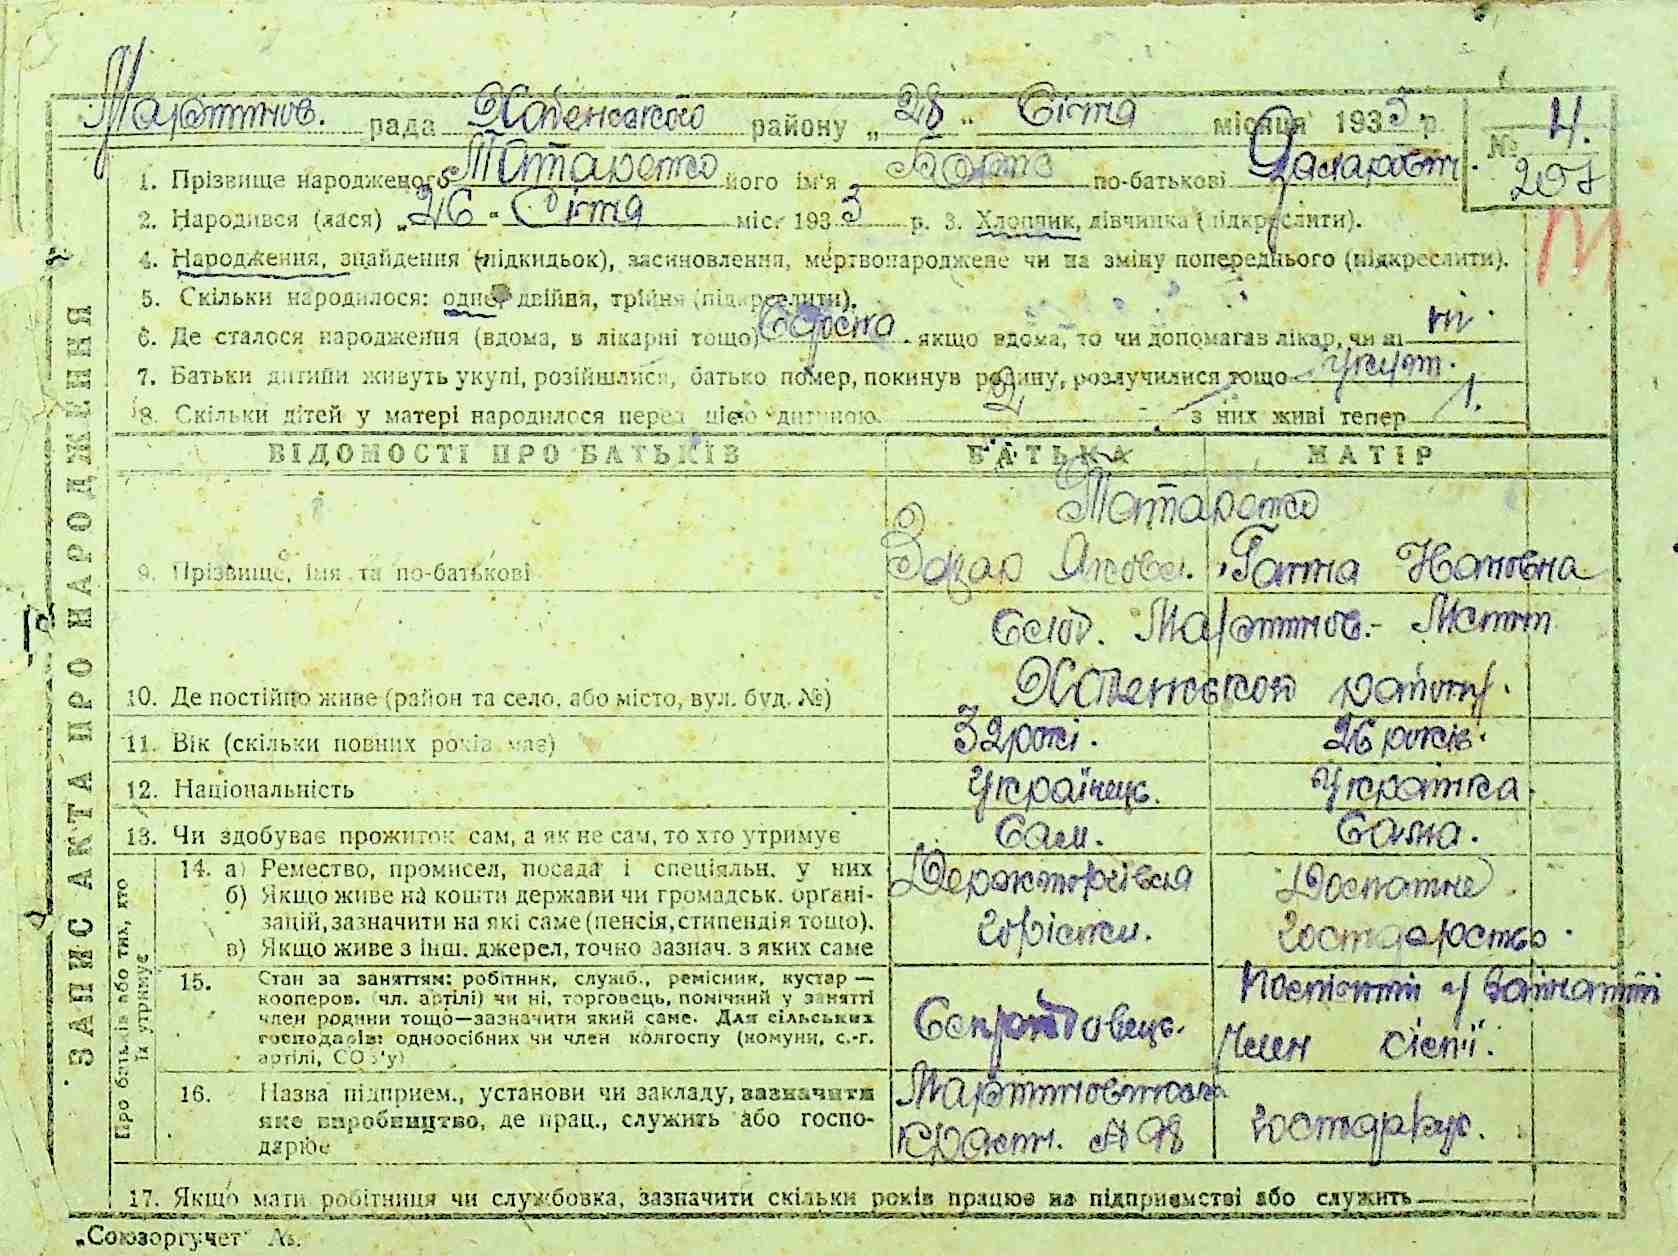 Мартинов. рада Хабенського району „28" Січня місяця 1933 р. № 4.
207
1. Прізвище народженого Татаренко його ім'я Борис по-батькові
2. Народився (лася) „26" Січня міс. 1933 р. 3. Хлопчик, дівчинка (підкреслити).
4. Народження, знайдення (підкидьок), засиновлення, мертвонароджене чи на зміну попереднього (підкреслити).
5. Скільки народилося: одне, двійня, трійня (підкреслити).
6. Де сталося народження (вдома, в лікарні тощо) якщо вдома, то чи допомагав лікар, чи ні ні.
7. Батьки дитини живуть укупі, розійшлися, батько помер, покинув родину, розлучилися тощо укупі.
8. Скільки дітей у матері народилося перед цією дитиною 2 з них живі тепер 1.
ВІДОМОСТІ ПРО БАТЬКІВ БАТЬКА МАТІР
Татаренко
9. Прізвище, імя та по-батькові Захар Яковл. Ганна Іановна
Мартинов.-
10. Де постійно живе (район та село, або місто, вул. буд. №) Хабенського району.
11. Вік (скільки повних років має) 32 рокі. 26 років.
12. Національність Українець. Українка.
13. Чи здобуває прожиток сам, а як не сам, то хто утримує Сам. Сама.
14. а) Ремество, промисел, посада і спеціяльн. у них
б) Якщо живе на кошти держави чи громадськ. органі-
зацій, зазначити на які саме (пенсія, стипендія тощо).
в) Якщо живе з інш. джерел, точно зазнач. з яких саме
Домашне
господарство.
15. Стан за заняттям: робітник, служб., ремісник, кустар —
кооперов. (чл. артілі) чи ні, торговець, помічний у занятті
член родини тощо—зазначити який саме. Для сільських
господарів: одноосібних чи член колгоспу (комуни, с.-г.
артілі, СОЗ'у)
член сім'ї.
16. Назва підприєм., установи чи закладу, зазначити
яке виробництво, де прац., служить або госпо-
дарює
17. Якщо мати робітниця чи службовка, зазначити скільки років працює на підприємстві або служить
„Союзоргучет"
ЗАПИС АКТА ПРО НАРОДЖЕННЯ
Про батьків або тих, хто
їх утримує